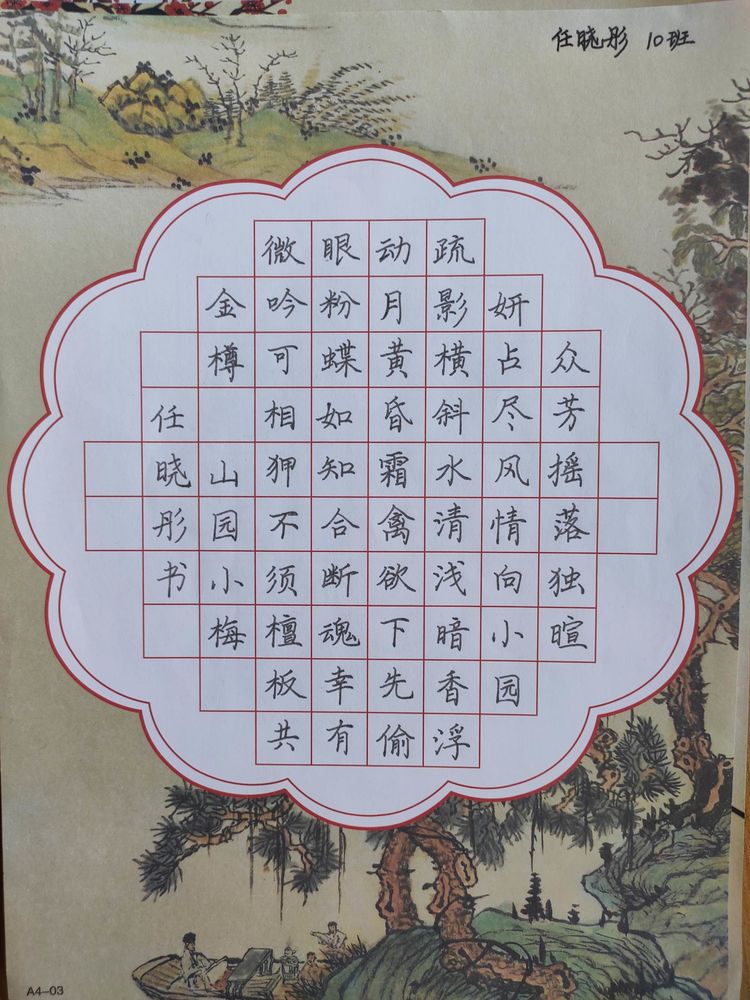 任晓彤 10班
众芳摇落独暄
妍占尽风情向小园
疏影横斜水清浅暗香浮
动月黄昏霜禽欲下先偷
眼粉蝶如知合断魂幸有
微吟可相狎不须檀板共
金樽 山园小梅
任晓彤书
A4-03